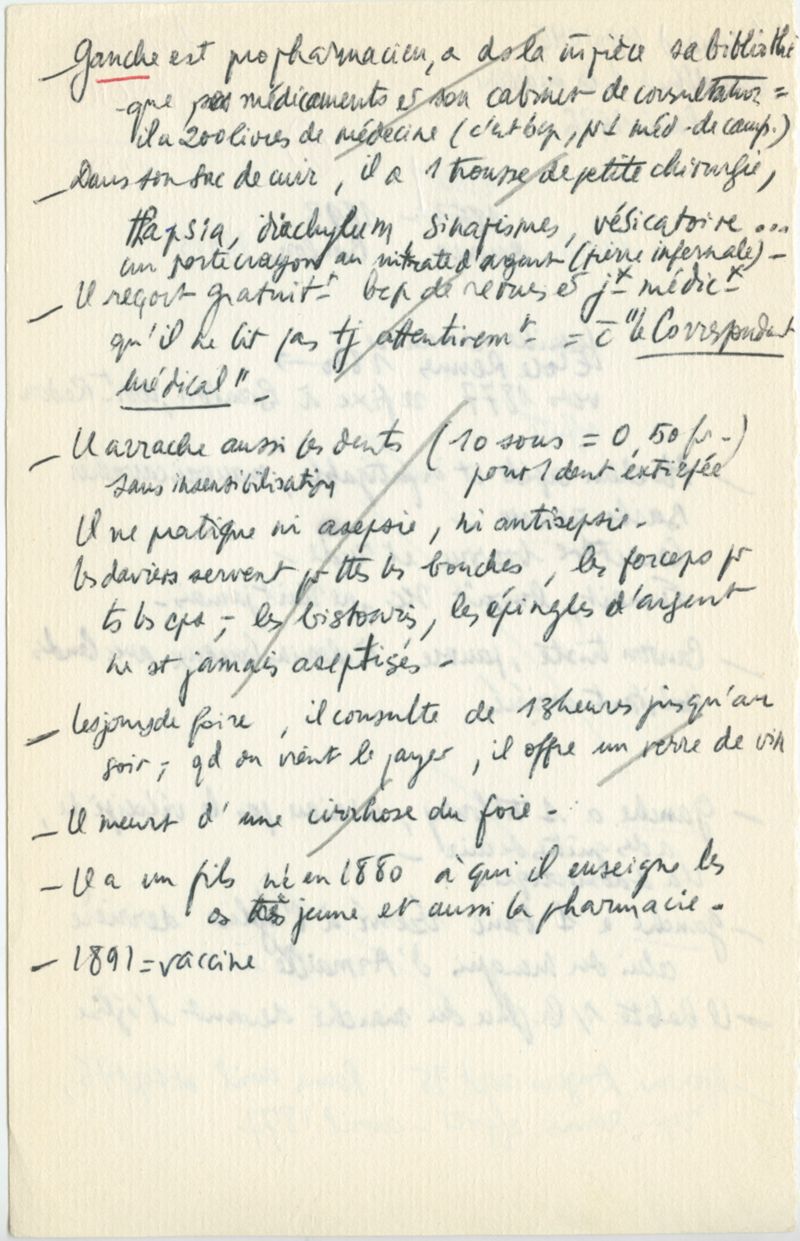 — Ganche est propharmacien, a ds la m̄ pièce sa bibliothè
-que, ses médicaments et son cabinet de consultation =
il a 200 livres de médecine (c'est bcp, pr 1 méd. de camp.)
— Dans son sac de cuir, il a 1 trousse de petite chirurgie,
thapsia, diachylum sinapismes, vésicatoire ...
un porte crayon au nitrate d'argent (pierre infernale) —
— Il reçoit gratuit^t bcp de revues et j^x médic^x
qu'il ne lit pas tj attentivem^t - = c̄ "le Correspondant
médical" -
— Il arrache aussi les dents (10 sous = 0,50 fr -)
sans insensibilisation pour 1 dent extirpée
Il ne pratique ni asepsie, ni antisepsie -
les daviers servent pr ttes les bouches, les forceps pr
ts les cas ; - les bistouris, les épingles d'argent
ne st jamais aseptisés -
— les jours de foire, il consulte de 13 heures jusqu'au
soir ; qd on vient le payer, il offre un verre de vin
— Il meurt d'une cirrhose du foie -
— Il a un fils né en 1880 à qui il enseigne les
os très jeune et aussi la pharmacie -
— 1891 = vaccine